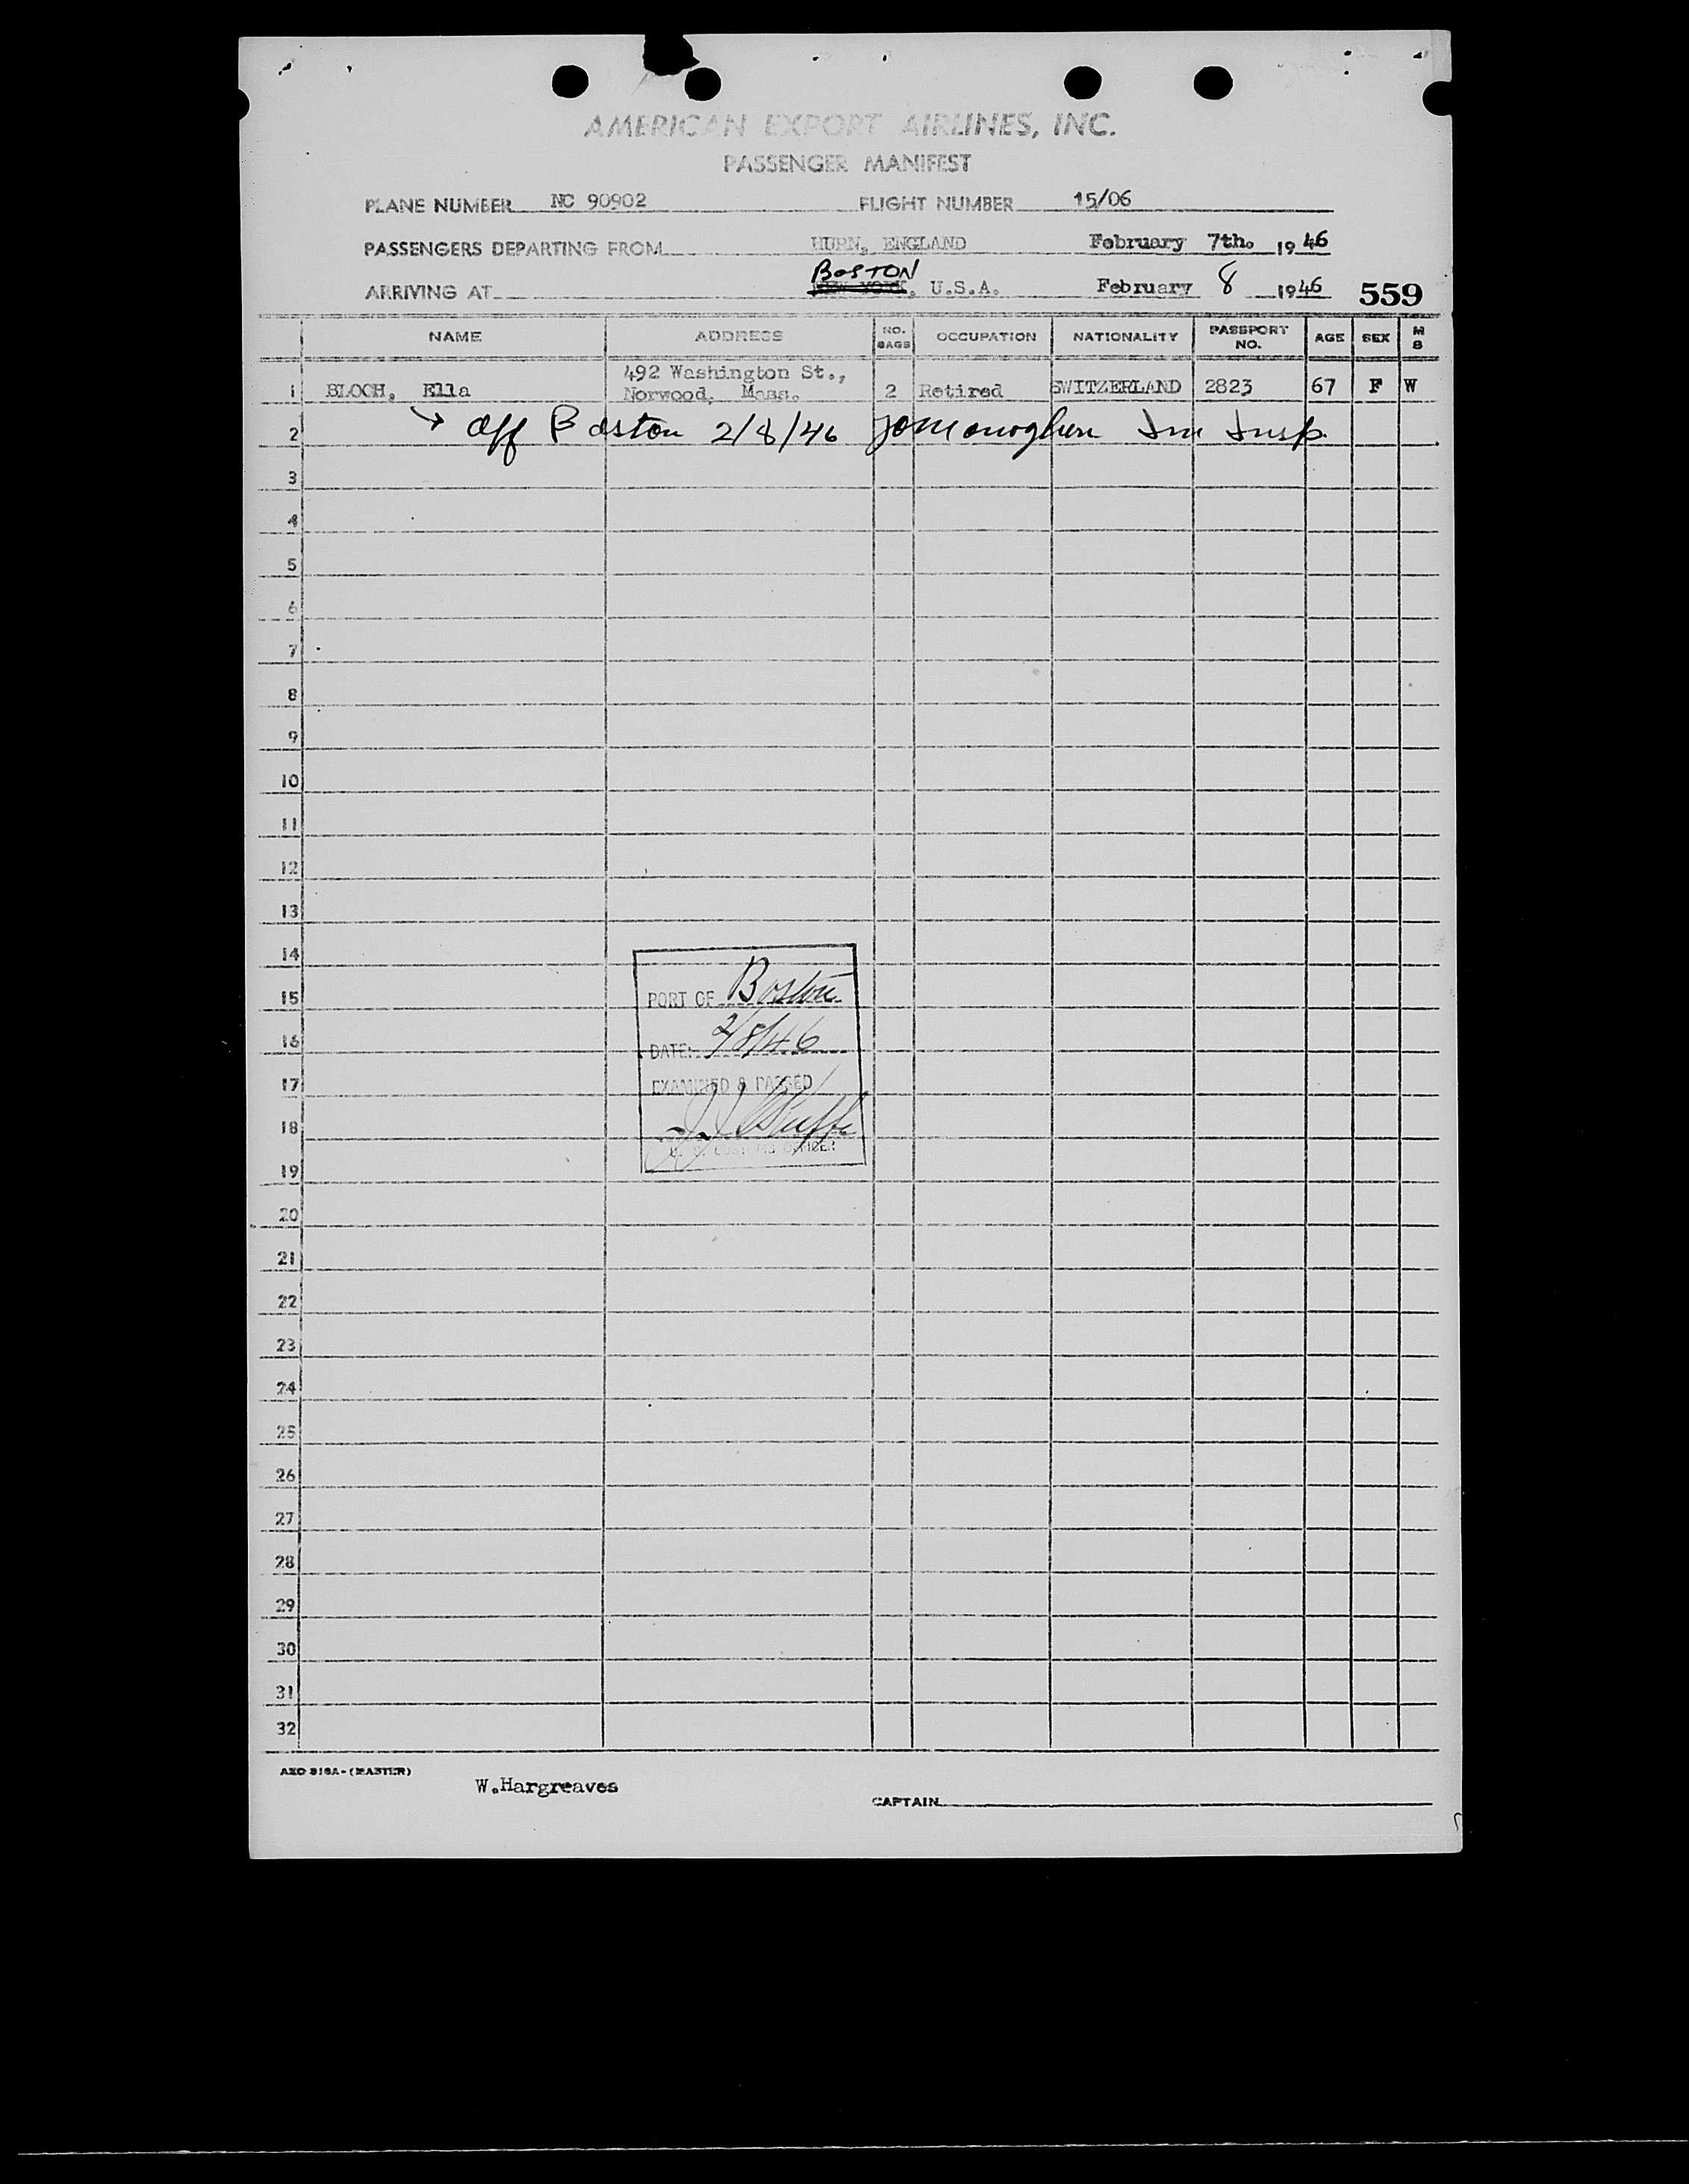 AMERICAN EXPORT AIRLINES, INC.
PASSENGER MANIFEST
PLANE NUMBER NC 90902 FLIGHT NUMBER 15/06
PASSENGERS DEPARTING FROM HURN, ENGLAND February 7th. 1946
BOSTON
ARRIVING AT NEW YORK, U.S.A. February 8 1946 559
NAME ADDRESS NO. BAGS OCCUPATION NATIONALITY PASSPORT NO. AGE SEX M S
492 Washington St.,
1 BLOCH, Ella Norwood, Mass. 2 Retired SWITZERLAND 2823 67 F W
2 off Boston 2/8/46 Imm Insp.
3
4
5
6
7
8
9
10
11
12
13
14
15 PORT OF Boston
16 DATE: 2/8/46
17 EXAMINED & PASSED
18
U. S. CUSTOMS
19
20
21
22
23
24
25
26
27
28
29
30
31
32
AXO 818A-(MASTER)
W.Hargreaves
CAPTAIN